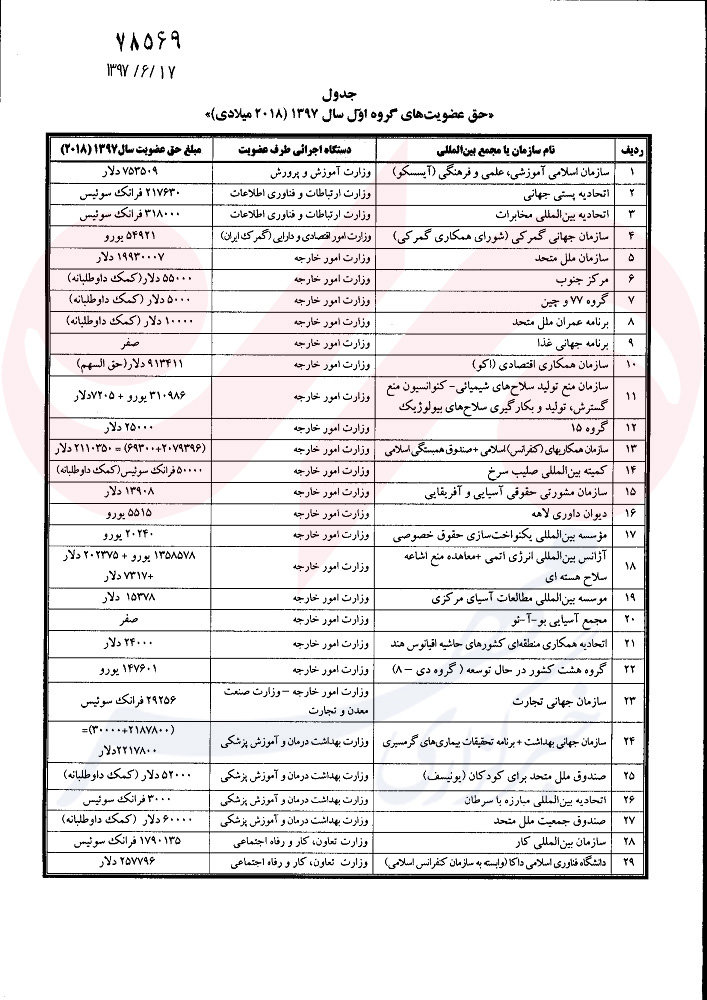 ۷۸۵۶۹
۱۳۹۷/۶/۱۷
جدول
«حق عضویت‌های گروه اوّل سال ۱۳۹۷ (۲۰۱۸ میلادی)»
ردیف نام سازمان یا مجمع بین‌المللی دستگاه اجرائی طرف عضویت مبلغ حق عضویت سال۱۳۹۷ (۲۰۱۸)
۱ سازمان اسلامی آموزشی، علمی و فرهنگی (آیسسکو) وزارت آموزش و پرورش ۷۵۳۵۰۹ دلار
۲ اتحادیه پستی جهانی وزارت ارتباطات و فناوری اطلاعات ۲۱۷۶۳۰ فرانک سوئیس
۳ اتحادیه بین‌المللی مخابرات وزارت ارتباطات و فناوری اطلاعات ۳۱۸۰۰۰ فرانک سوئیس
۴ سازمان جهانی گمرکی (شورای همکاری گمرکی) وزارت امور اقتصادی و دارایی (گمرک ایران) ۵۴۹۲۱ یورو
۵ سازمان ملل متحد وزارت امور خارجه ۱۹۹۳۰۰۰۷ دلار
۶ مرکز جنوب وزارت امور خارجه ۵۵۰۰۰ دلار (کمک داوطلبانه)
۷ گروه ۷۷ و چین وزارت امور خارجه ۵۰۰۰ دلار (کمک داوطلبانه)
۸ برنامه عمران ملل متحد وزارت امور خارجه ۱۰۰۰۰ دلار (کمک داوطلبانه)
۹ برنامه جهانی غذا وزارت امور خارجه صفر
۱۰ سازمان همکاری اقتصادی (اکو) وزارت امور خارجه ۹۱۳۴۱۱ دلار (حق السهم)
۱۱ سازمان منع تولید سلاح‌های شیمیائی- کنوانسیون منع
گسترش، تولید و بکارگیری سلاح‌های بیولوژیک وزارت امور خارجه ۳۱۰۹۸۶ یورو + ۷۲۰۵دلار
۱۲ گروه ۱۵ وزارت امور خارجه ۲۵۰۰۰ دلار
۱۳ سازمان همکاریهای (کنفرانس) اسلامی +صندوق همبستگی اسلامی وزارت امور خارجه (۶۹۳۰۰+۲۰۷۹۳۹۶) = ۲۱۱۰۳۵۰ دلار
۱۴ کمیته بین‌المللی صلیب سرخ وزارت امور خارجه ۵۰۰۰۰ فرانک سوئیس(کمک داوطلبانه)
۱۵ سازمان مشورتی حقوقی آسیایی و آفریقایی وزارت امور خارجه ۱۳۹۰۸ دلار
۱۶ دیوان داوری لاهه وزارت امور خارجه ۵۵۱۵ یورو
۱۷ مؤسسه بین‌المللی یکنواخت‌سازی حقوق خصوصی وزارت امور خارجه ۲۰۲۴۰ یورو
۱۸ آژانس بین‌المللی انرژی اتمی +معاهده منع اشاعه
سلاح هسته ای وزارت امور خارجه ۱۳۵۸۵۷۸ یورو + ۲۰۲۳۷۵ دلار
+۷۳۱۷ دلار
۱۹ موسسه بین‌المللی مطالعات آسیای مرکزی وزارت امور خارجه ۱۵۳۷۸ دلار
۲۰ مجمع آسیایی بو-آ-ئو وزارت امور خارجه صفر
۲۱ اتحادیه همکاری منطقه‌ای کشورهای حاشیه اقیانوس هند وزارت امور خارجه ۲۴۰۰۰ دلار
۲۲ گروه هشت کشور در حال توسعه ( گروه دی – ۸) وزارت امور خارجه ۱۴۷۶۰۱ یورو
۲۳ سازمان جهانی تجارت وزارت امور خارجه – وزارت صنعت
معدن و تجارت ۲۹۲۵۶ فرانک سوئیس
۲۴ سازمان جهانی بهداشت + برنامه تحقیقات بیماری‌های گرمسیری وزارت بهداشت درمان و آموزش پزشکی (۲۱۸۷۸۰۰+۳۰۰۰۰)=
۲۲۱۷۸۰۰دلار
۲۵ صندوق ملل متحد برای کودکان (یونیسف) وزارت بهداشت درمان و آموزش پزشکی ۵۲۰۰۰ دلار (کمک داوطلبانه)
۲۶ اتحادیه بین‌المللی مبارزه با سرطان وزارت بهداشت درمان و آموزش پزشکی ۳۰۰۰ فرانک سوئیس
۲۷ صندوق جمعیت ملل متحد وزارت بهداشت درمان و آموزش پزشکی ۶۰۰۰۰ دلار (کمک داوطلبانه)
۲۸ سازمان بین‌المللی کار وزارت تعاون، کار و رفاه اجتماعی ۱۷۹۰۱۳۵ فرانک سوئیس
۲۹ دانشگاه فناوری اسلامی داکا (وابسته به سازمان کنفرانس اسلامی) وزارت تعاون، کار و رفاه اجتماعی ۲۵۷۷۹۶ دلار